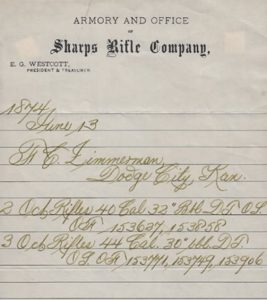 ARMORY AND OFFICE
OF
Sharps Rifle Company,
E. G. WESTCOTT,
PRESIDENT & TREASURER.
1874
June 13
F. C. Zimmerman,
Dodge City, Kan.
2 Oct Rifles 40 Cal. 32" Bbl. D.T. O.S.
O.F. 153637, 153858
3 Oct Rifles 44 Cal. 30" bbl. D.T.
O.S. O.F. 153771, 153749, 153906